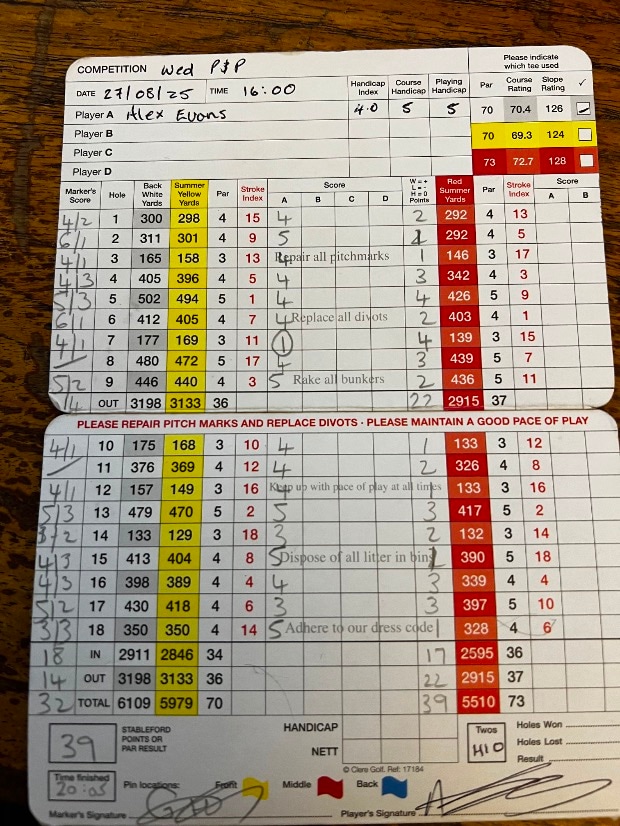 COMPETITION Wed P&P
Please indicate which tee used
DATE 27/08/25 TIME 16:00
Handicap Index Course Handicap Playing Handicap Par Course Rating Slope Rating ✓
Player A Alex Evans 4.0 5 5 70 70.4 126
Player B 70 69.3 124
Player C 73 72.7 128
Player D
Marker's Score Hole Back White Yards Summer Yellow Yards Par Stroke Index Score A B C D W=+ L=- H=0 Points Red Summer Yards Par Stroke Index Score A B
4/2 1 300 298 4 15 4 2 292 4 13
6/1 2 311 301 4 9 5 292 4 5
4/1 3 165 158 3 13 4 Repair all pitchmarks 1 146 3 17
4/3 4 405 396 4 5 4 3 342 4 3
5/3 5 502 494 5 1 4 4 426 5 9
6/1 6 412 405 4 7 4 Replace all divots 2 403 4 1
4/1 7 177 169 3 11 1 4 139 3 15
8 480 472 5 17 4 3 439 5 7
5/2 9 446 440 4 3 5 Rake all bunkers 2 436 5 11
14 OUT 3198 3133 36 22 2915 37
PLEASE REPAIR PITCH MARKS AND REPLACE DIVOTS · PLEASE MAINTAIN A GOOD PACE OF PLAY
4/1 10 175 168 3 10 4 1 133 3 12
11 376 369 4 12 4 2 326 4 8
4/1 12 157 149 3 16 4 Keep up with pace of play at all times 1 133 3 16
5/3 13 479 470 5 2 5 3 417 5 2
3/2 14 133 129 3 18 3 2 132 3 14
4/3 15 413 404 4 8 5 Dispose of all litter in bins 390 5 18
4/3 16 398 389 4 4 4 3 339 4 4
5/2 17 430 418 4 6 3 3 397 5 10
3/3 18 350 350 4 14 5 Adhere to our dress code 1 328 4 6
18 IN 2911 2846 34 17 2595 36
14 OUT 3198 3133 36 22 2915 37
32 TOTAL 6109 5979 70 39 5510 73
39 STABLEFORD POINTS OR PAR RESULT
HANDICAP
NETT
Twos H10
Holes Won
Holes Lost
Result
© Clere Golf. Ref: 17184
Time finished 20:05
Pin locations: Front Middle Back
Marker's Signature
Player's Signature